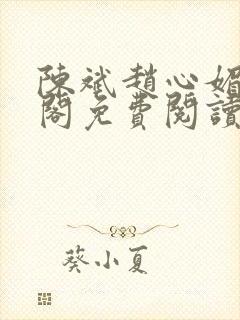 陳斌趙心媚
閣免費閱讀
葵小夏